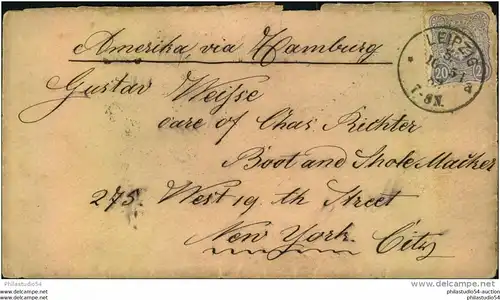 Amerika via Hamburg
LEIPZIG
7-8N.
20
Gustav Weisse
care of Chas Richter
Boot and Shoe Macker
275. West 19. th Street
New York. City
Philastudio54-Auction
philastudio54-auction
© delcampe.net